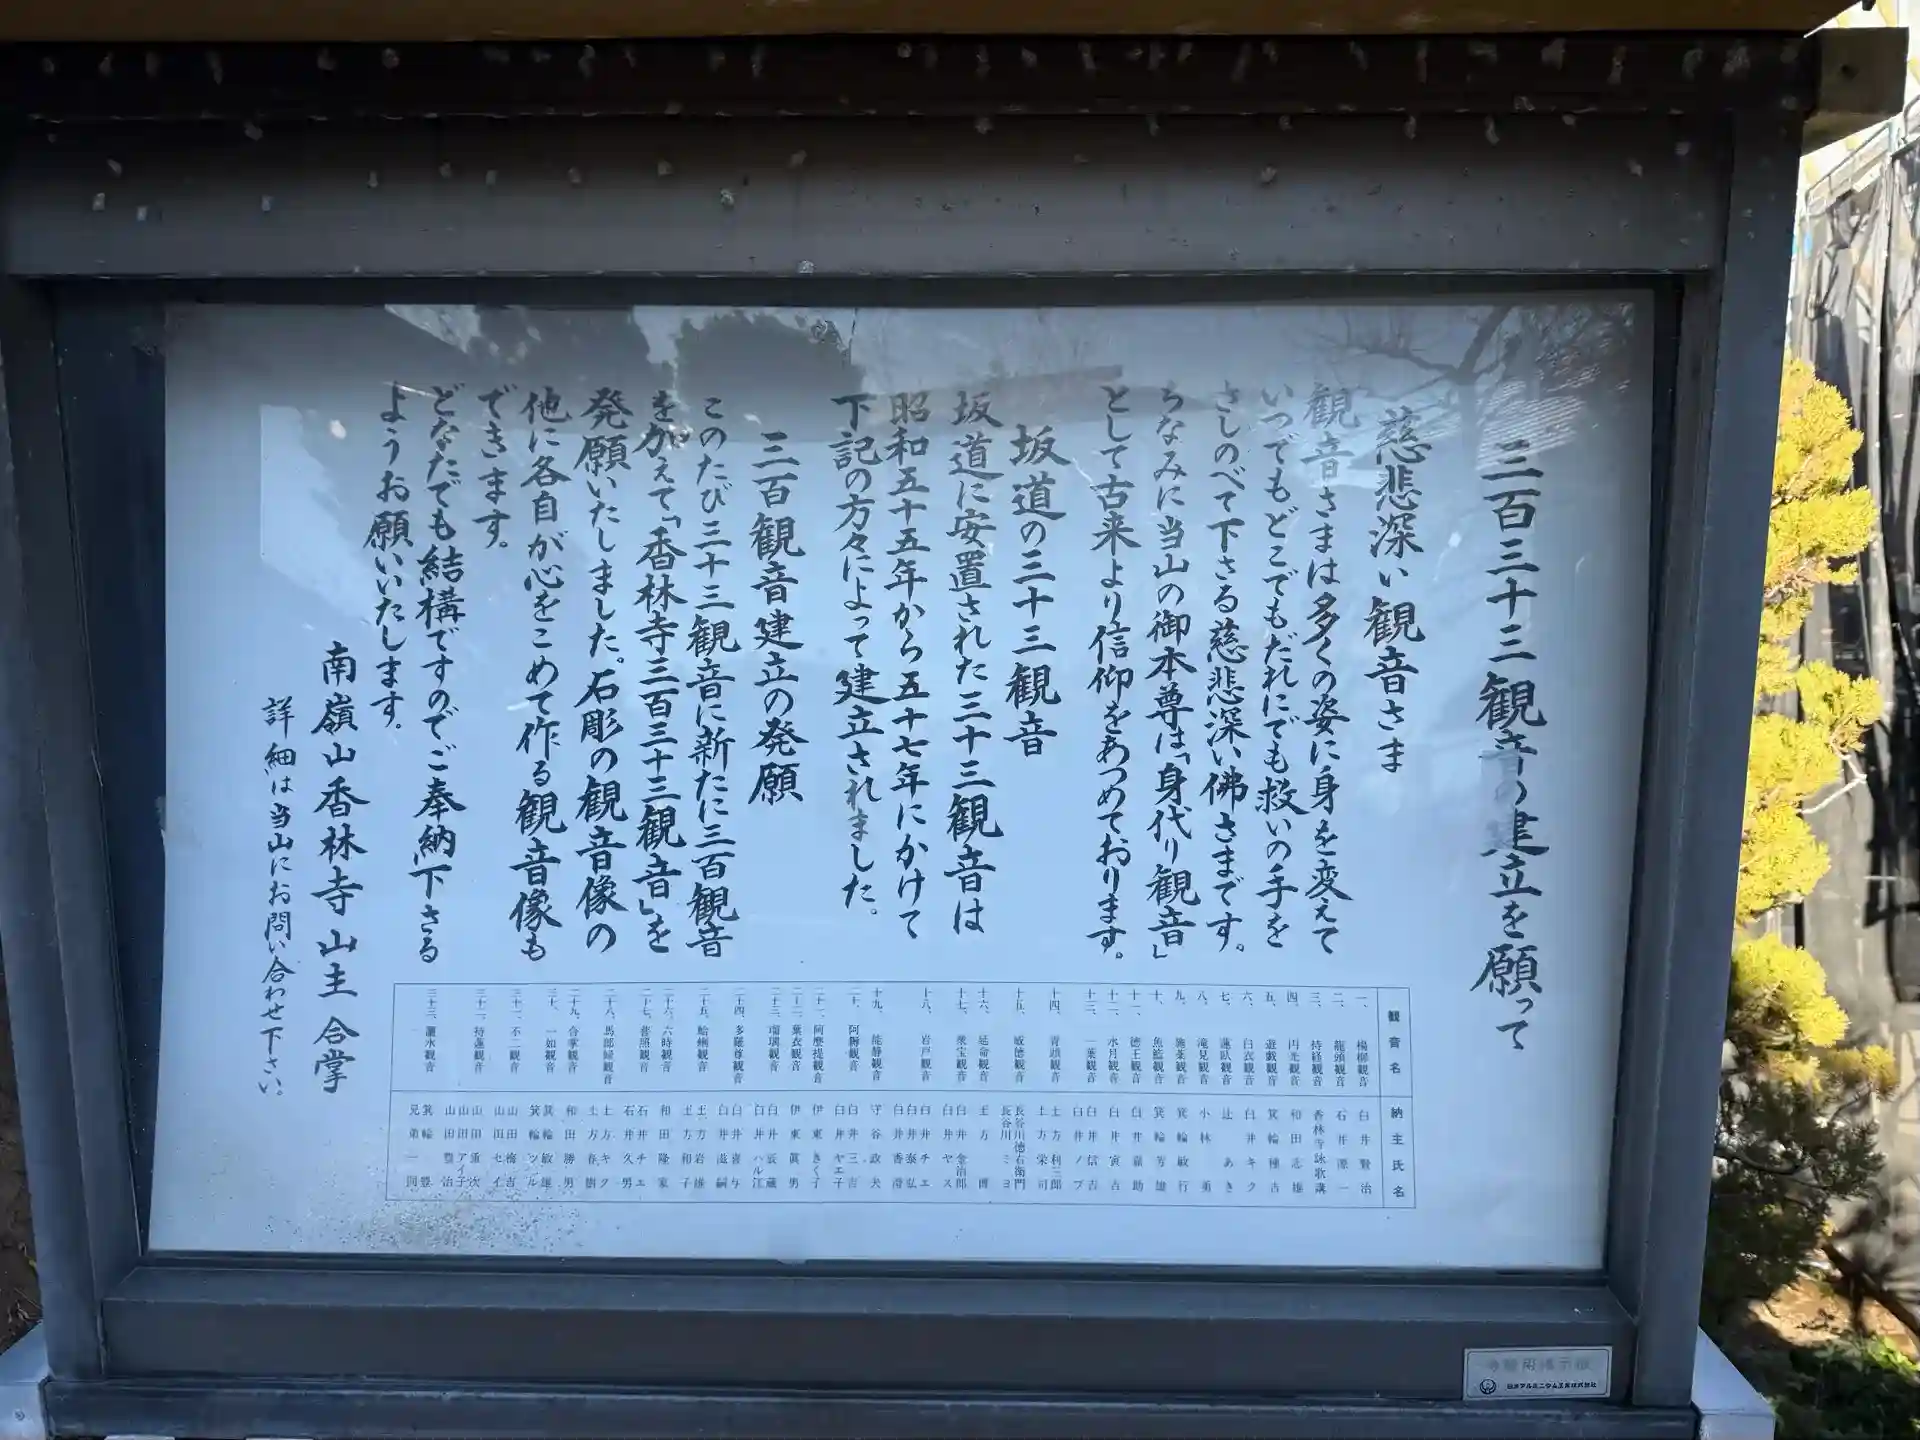 三百三十三観音の建立を願って
慈悲深い観音さま
観音さまは多くの姿に身を変えて
いつでもどこでもだれにでも救いの手を
さしのべて下さる慈悲深い佛さまです。
ちなみに当山の御本尊は「身代り観音」
として古来より信仰をあつめております。
坂道の三十三観音
坂道に安置された三十三観音は
昭和五十五年から五十七年にかけて
下記の方々によって建立されました。
三百観音建立の発願
このたび三十三観音に新たに三百観音
をかえて「香林寺三百三十三観音」を
発願いたしました。石彫の観音像の
他に各自が心をこめて作る観音像も
できます。
どなたでも結構ですのでご奉納下さる
ようお願いいたします。
南嶺山香林寺山主 合掌
詳細は当山にお問い合わせ下さい。
観音名 納主氏名
一、楊柳観音 臼井賢治
二、龍頭観音 石井源一
三、持経観音 香林寺詠歌講
四、円光観音 和田志雄
五、遊戯観音 箕輪種吉
六、白衣観音 臼井キク
七、蓮臥観音 辻あき
八、滝見観音 小林勇
九、施薬観音 箕輪敏行
十、魚籃観音 箕輪芳雄
十一、徳王観音 臼井嘉助
十二、水月観音 臼井寅吉
十三、一葉観音 臼井信吉 臼井ノブ
十四、青頸観音 土方利三郎 土方栄司
十五、威徳観音 長谷川徳右衛門 長谷川ミヨ
十六、延命観音 土方博
十七、衆宝観音 臼井金治郎 臼井ヤス
十八、岩戸観音 臼井チエ 臼井泰弘 臼井香澄
十九、能静観音 守谷政夫
二十、阿耨観音 臼井三吉 臼井ヤエ子
二十一、阿麼提観音 伊東きく子
二十二、葉衣観音 伊東眞男
二十三、瑠璃観音 臼井辰蔵 臼井ハル江
二十四、多羅尊観音 臼井喜与 臼井滋嗣
二十五、蛤蜊観音 土方岩雄 土方和子
二十六、六時観音 和田隆家
二十七、普照観音 石井チエ 石井久男
二十八、馬郎婦観音 土方キク 土方春樹
二十九、合掌観音 和田勝男
三十、一如観音 箕輪敏雄 箕輪ツル
三十一、不二観音 山田梅吉 山田セイ
三十二、持蓮観音 山田重次 山田アイ子 山田豊治
三十三、灑水観音 箕輪豊 兄弟一同
寺院用掲示板
日本アルミニウム工業株式会社